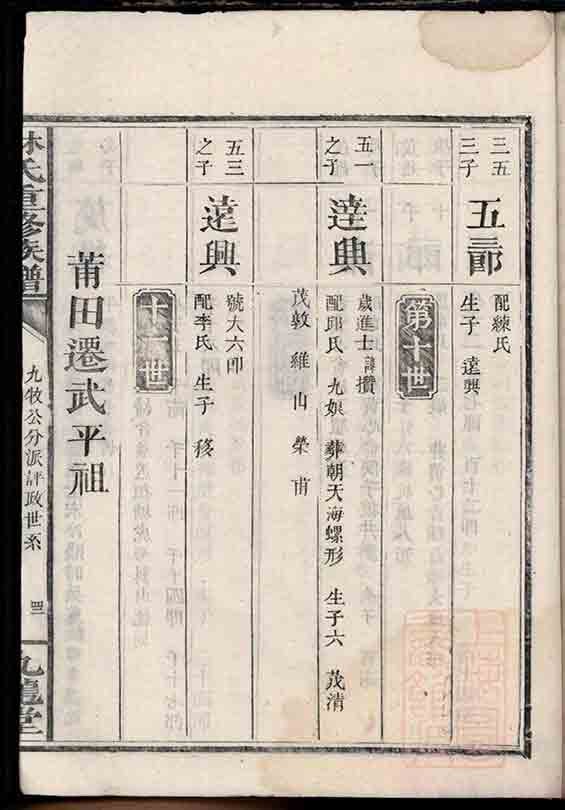 三五
三子
五郎
配練氏
生子一 遠興
第十世
五一
之子
達興
歲進士諱攢
配邱氏 九娘 葬朝天海螺形 生子六 茂清
茂敦 維 山 榮 甫
五三
之子
遠興
號大六郎
配李氏 生子 移
十一世
莆田遷武平祖
林氏重修族譜
九牧公分派評政世系
四
九龍堂